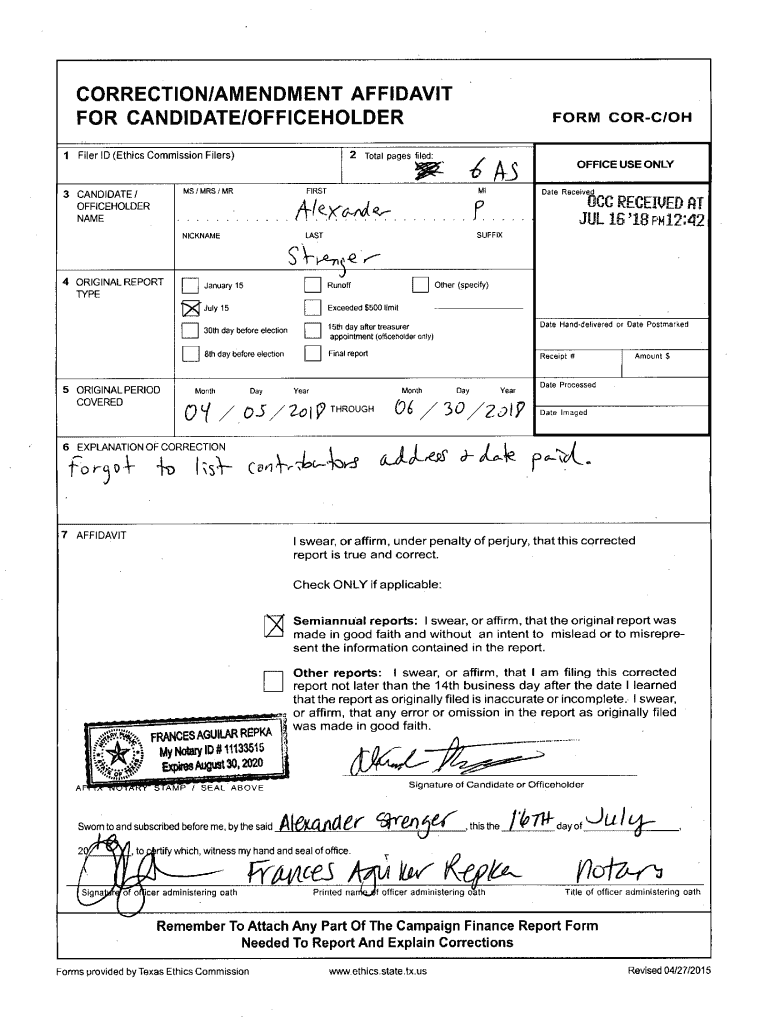 CORRECTION/AMENDMENT AFFIDAVIT
FOR CANDIDATE/OFFICEHOLDER
FORM COR-C/OH
1 Filer ID (Ethics Commission Filers)
2 Total pages filed:
6 AS
OFFICE USE ONLY
3 CANDIDATE / OFFICEHOLDER NAME
MS / MRS / MR FIRST MI
Alexander P
NICKNAME LAST SUFFIX
Strenger
Date Received
OCC RECEIVED AT
JUL 16 '18 PM12:42
4 ORIGINAL REPORT TYPE
January 15 Runoff Other (specify)
July 15 Exceeded $500 limit
30th day before election 15th day after treasurer appointment (officeholder only)
8th day before election Final report
Date Hand-delivered or Date Postmarked
Receipt # Amount $
Date Processed
Date Imaged
5 ORIGINAL PERIOD COVERED
Month Day Year Month Day Year
04 / 05 / 2018 THROUGH 06 / 30 / 2018
6 EXPLANATION OF CORRECTION
Forgot to list contributors address & date paid.
7 AFFIDAVIT
I swear, or affirm, under penalty of perjury, that this corrected
report is true and correct.
Check ONLY if applicable:
Semiannual reports: I swear, or affirm, that the original report was
made in good faith and without an intent to mislead or to misrepre-
sent the information contained in the report.
Other reports: I swear, or affirm, that I am filing this corrected
report not later than the 14th business day after the date I learned
that the report as originally filed is inaccurate or incomplete. I swear,
or affirm, that any error or omission in the report as originally filed
was made in good faith.
NOTARY PUBLIC
STATE OF TEXAS
FRANCES AGUILAR REPKA
My Notary ID # 11133515
Expires August 30, 2020
AFFIX NOTARY STAMP / SEAL ABOVE
Signature of Candidate or Officeholder
Sworn to and subscribed before me, by the said Alexander Strenger, this the 16TH day of July,
20 18, to certify which, witness my hand and seal of office.
Frances Aguilar Repka Notary
Signature of officer administering oath Printed name of officer administering oath Title of officer administering oath
Remember To Attach Any Part Of The Campaign Finance Report Form
Needed To Report And Explain Corrections
Forms provided by Texas Ethics Commission www.ethics.state.tx.us Revised 04/27/2015